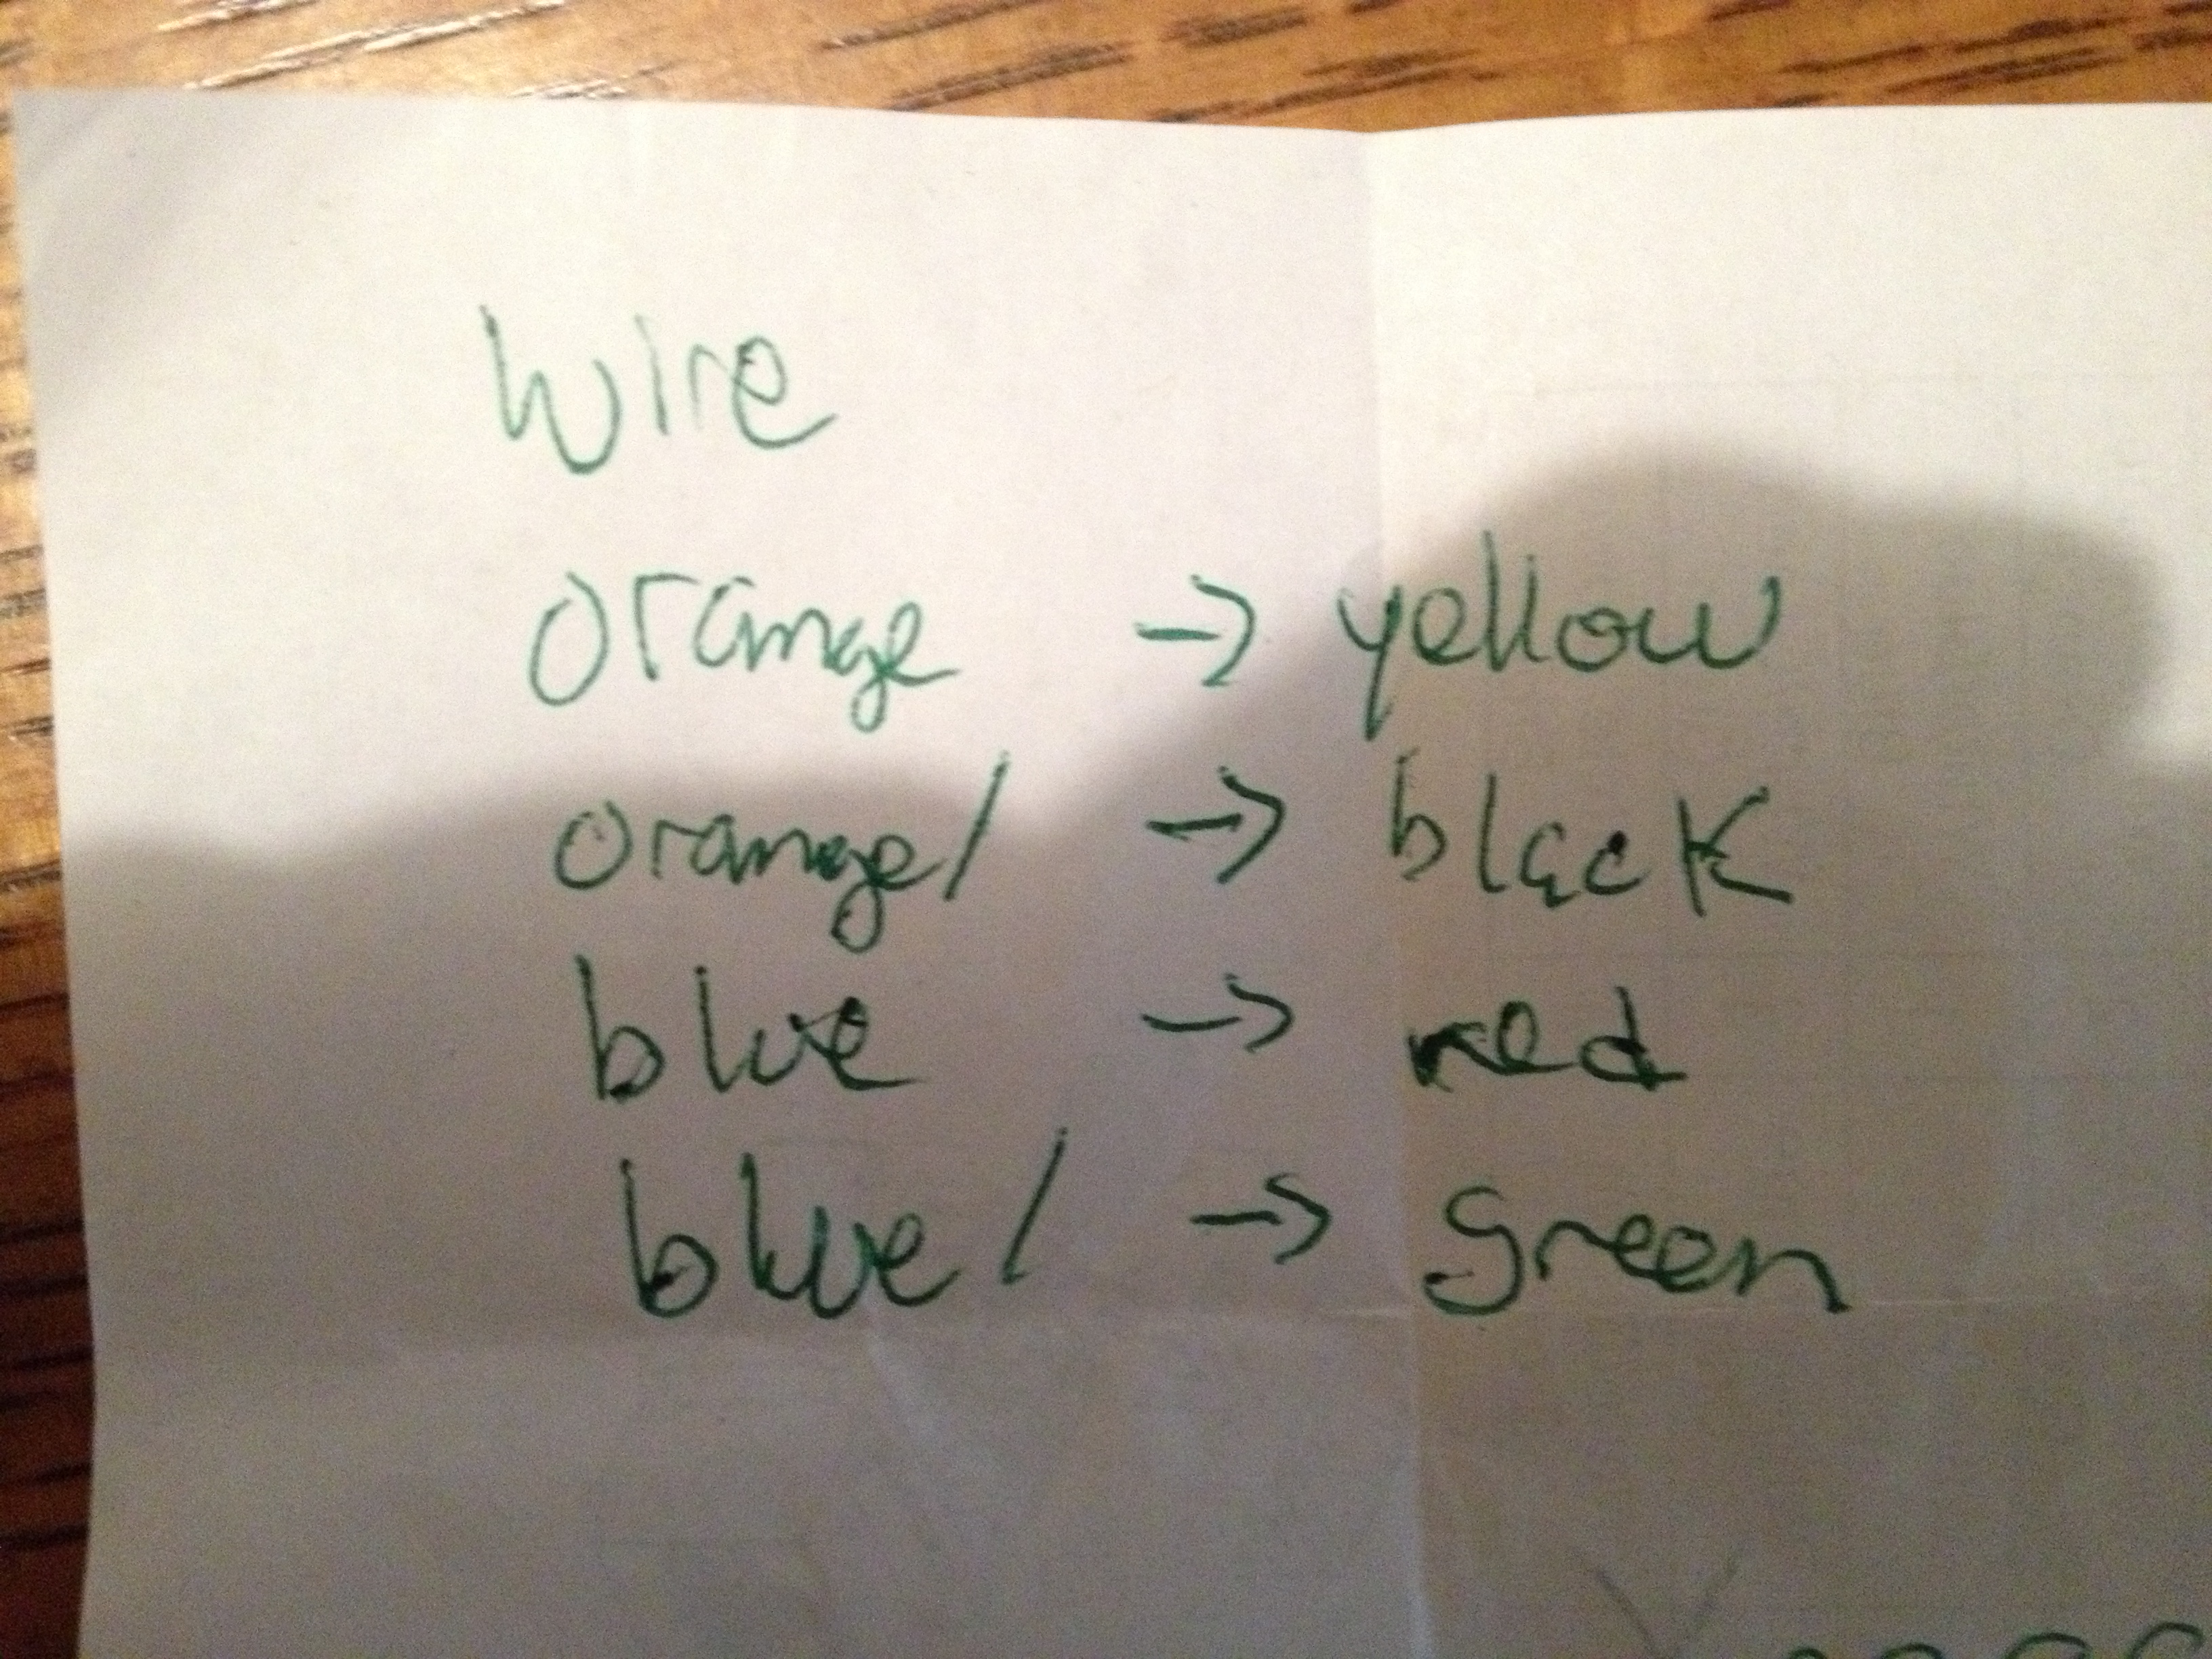 wire
orange → yellow
orange/ → black
blue → red
blue/ → Green